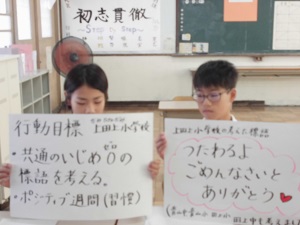 初志貫徹
〜Step by Step〜
行動目標 上田上小学校
・共通のいじめ0の
ゼロ
標語を考える。
・ポジティブ週間(習慣)
上田上小学校の考えた標語
うたわるよ
ごめんなさいと
ありがとう